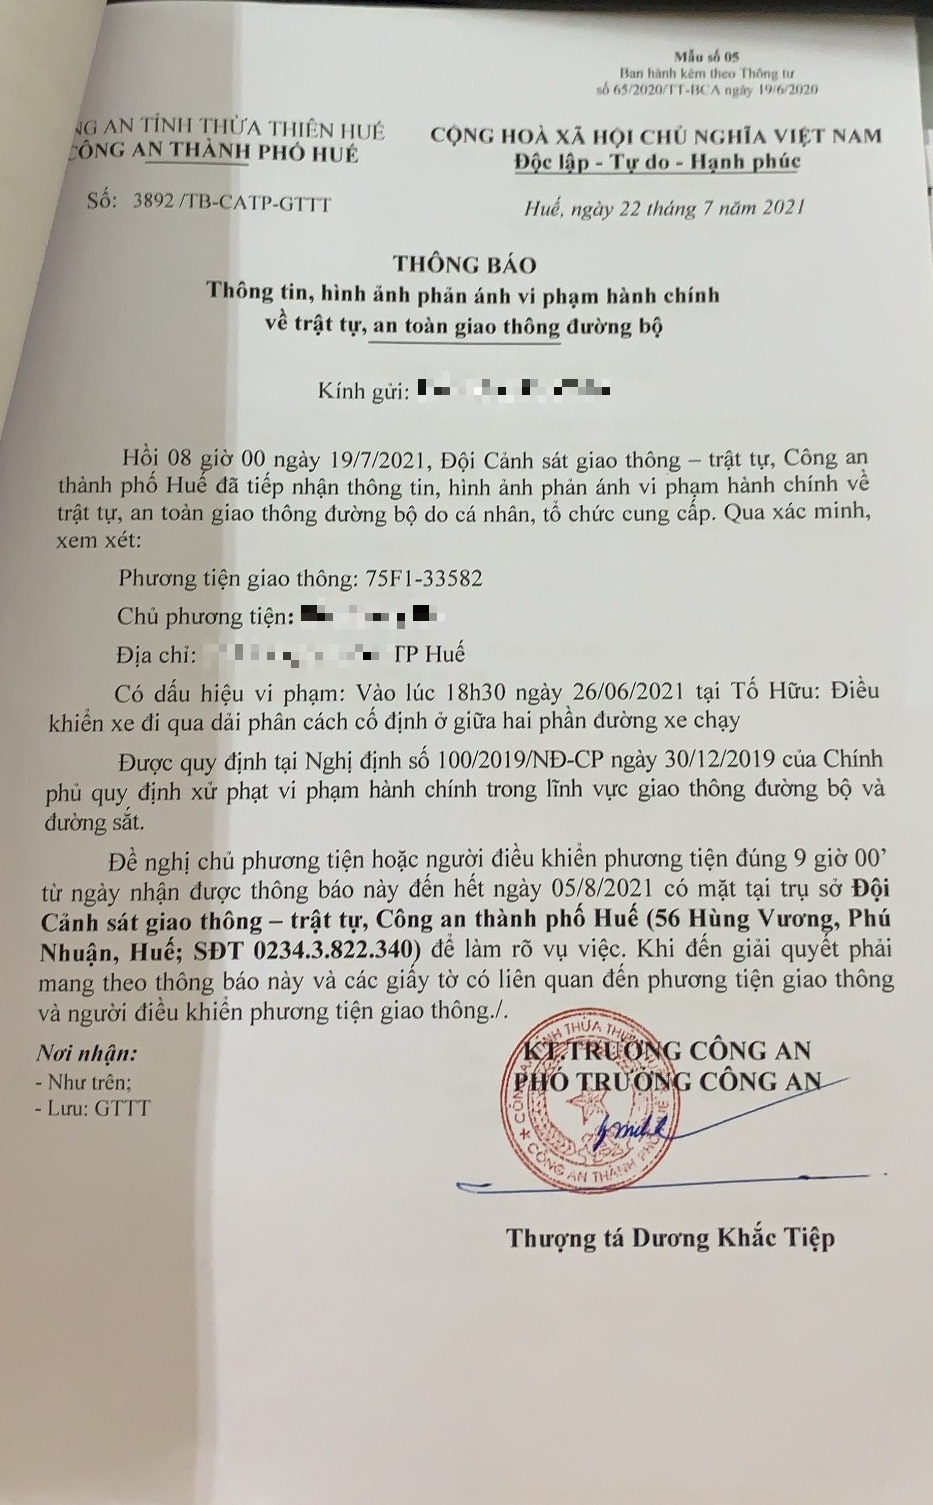 Mẫu số 05
Ban hành kèm theo Thông tư
số 65/2020/TT-BCA ngày 19/6/2020
NG AN TỈNH THỪA THIÊN HUẾ
CÔNG AN THÀNH PHỐ HUẾ
CỘNG HOÀ XÃ HỘI CHỦ NGHĨA VIỆT NAM
Độc lập - Tự do - Hạnh phúc
Số: 3892 /TB-CATP-GTTT
Huế, ngày 22 tháng 7 năm 2021
THÔNG BÁO
Thông tin, hình ảnh phản ánh vi phạm hành chính
về trật tự, an toàn giao thông đường bộ
Kính gửi:
Hồi 08 giờ 00 ngày 19/7/2021, Đội Cảnh sát giao thông – trật tự, Công an
thành phố Huế đã tiếp nhận thông tin, hình ảnh phản ánh vi phạm hành chính về
trật tự, an toàn giao thông đường bộ do cá nhân, tổ chức cung cấp. Qua xác minh,
xem xét:
Phương tiện giao thông: 75F1-33582
Chủ phương tiện:
Địa chỉ: TP Huế
Có dấu hiệu vi phạm: Vào lúc 18h30 ngày 26/06/2021 tại Tố Hữu: Điều
khiển xe đi qua dải phân cách cố định ở giữa hai phần đường xe chạy
Được quy định tại Nghị định số 100/2019/NĐ-CP ngày 30/12/2019 của Chính
phủ quy định xử phạt vi phạm hành chính trong lĩnh vực giao thông đường bộ và
đường sắt.
Đề nghị chủ phương tiện hoặc người điều khiển phương tiện đúng 9 giờ 00’
từ ngày nhận được thông báo này đến hết ngày 05/8/2021 có mặt tại trụ sở Đội
Cảnh sát giao thông – trật tự, Công an thành phố Huế (56 Hùng Vương, Phú
Nhuận, Huế; SĐT 0234.3.822.340) để làm rõ vụ việc. Khi đến giải quyết phải
mang theo thông báo này và các giấy tờ có liên quan đến phương tiện giao thông
và người điều khiển phương tiện giao thông./.
Nơi nhận:
- Như trên;
- Lưu: GTTT
KT.TRƯỞNG CÔNG AN
PHÓ TRƯỞNG CÔNG AN
CÔNG AN TỈNH THỪA THIÊN HUẾ
CÔNG AN THÀNH PHỐ
Thượng tá Dương Khắc Tiệp